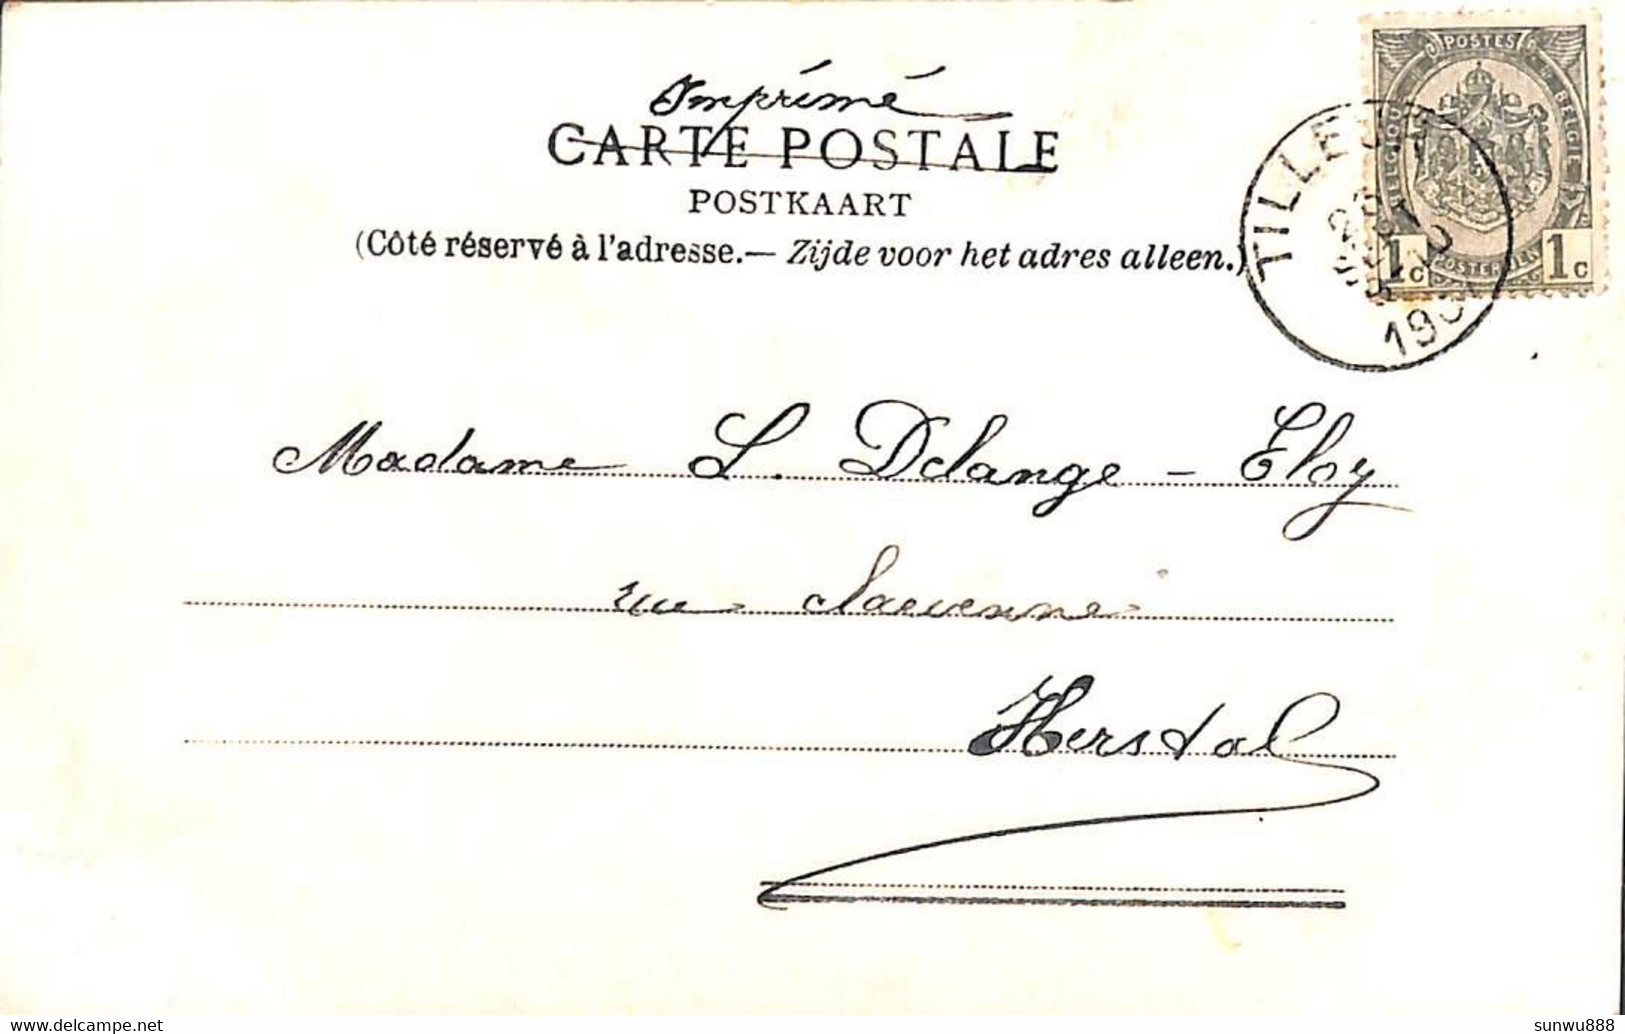 Imprimé
CARTE POSTALE
POSTKAART
(Côté réservé à l'adresse.— Zijde voor het adres alleen.)
POSTES
BELGIQUE
BELGIE
POSTERIJEN
1c 1c
TILLEUR
Madame L. Delange - Eloy
rue
Herstal
delcampe.net
sunwu888